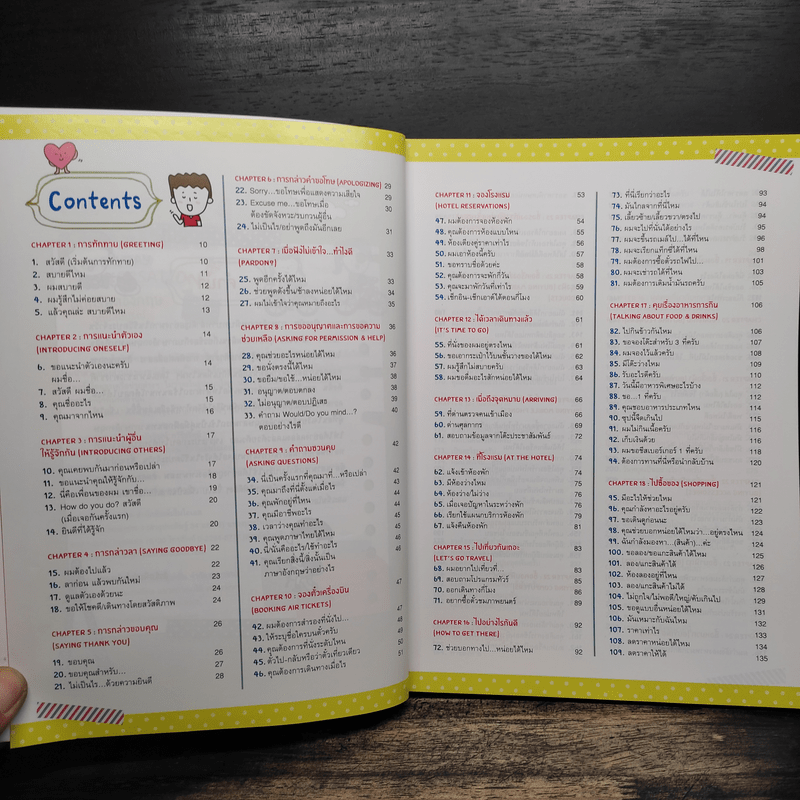 Contents
CHAPTER 1 : การทักทาย (GREETING) 10
1. สวัสดี (เริ่มต้นการทักทาย) 10
2. สบายดีไหม 11
3. ผมสบายดี 12
4. ผมรู้สึกไม่ค่อยสบาย 12
5. แล้วคุณล่ะ สบายดีไหม 13
CHAPTER 2 : การแนะนำตัวเอง 14
(INTRODUCING ONESELF)
6. ขอแนะนำตัวเองนะครับ 14
ผมชื่อ...
7. สวัสดี ผมชื่อ... 15
8. คุณชื่ออะไร 15
9. คุณมาจากไหน 16
CHAPTER 3 : การแนะนำผู้อื่น 17
ให้รู้จักกัน (INTRODUCING OTHERS)
10. คุณเคยพบกันมาก่อนหรือเปล่า 17
11. ขอแนะนำคุณให้รู้จักกับ... 18
12. นี่คือเพื่อนของผม เขาชื่อ... 19
13. How do you do? สวัสดี 20
(เมื่อเจอกันครั้งแรก)
14. ยินดีที่ได้รู้จัก 20
CHAPTER 4 : การกล่าวลา (SAYING GOODBYE) 22
15. ผมต้องไปแล้ว 22
16. ลาก่อน แล้วพบกันใหม่ 23
17. ดูแลตัวเองด้วยนะ 24
18. ขอให้โชคดี/เดินทางโดยสวัสดิภาพ 24
CHAPTER 5 : การกล่าวขอบคุณ 26
(SAYING THANK YOU)
19. ขอบคุณ 26
20. ขอบคุณสำหรับ... 27
21. ไม่เป็นไร...ด้วยความยินดี 28
CHAPTER 6 : การกล่าวคำขอโทษ (APOLOGIZING) 29
22. Sorry...ขอโทษเพื่อแสดงความเสียใจ 29
23. Excuse me...ขอโทษเมื่อ 30
ต้องขัดจังหวะ/รบกวนผู้อื่น
24. ไม่เป็นไร/อย่าพูดถึงมันอีกเลย 31
CHAPTER 7 : เมื่อฟังไม่เข้าใจ...ทำไงดี 33
(PARDON?)
25. พูดอีกครั้งได้ไหม 33
26. ช่วยพูดดังขึ้น/ช้าลงหน่อยได้ไหม 34
27. ผมไม่เข้าใจว่าคุณหมายถึงอะไร 35
CHAPTER 8 : การขออนุญาตและการขอความ 36
ช่วยเหลือ (ASKING FOR PERMISSION & HELP)
28. คุณช่วยอะไรหน่อยได้ไหม 36
29. ขอนั่งตรงนี้ได้ไหม 38
30. ขอยืม/ขอใช้...หน่อยได้ไหม 38
31. อนุญาต/ตอบตกลง 38
32. ไม่อนุญาต/ตอบปฏิเสธ 39
33. คำถาม Would/Do you mind...? 40
ตอบอย่างไรดี
CHAPTER 9 : คำถามชวนคุย 42
(ASKING QUESTIONS)
34. นี่เป็นครั้งแรกที่คุณมาที่...หรือเปล่า 42
35. คุณมาถึงที่นี่ตั้งแต่เมื่อไร 42
36. คุณพักอยู่ที่ไหน 43
37. คุณมีอาชีพอะไร 43
38. เวลาว่างคุณทำอะไร 44
39. คุณพูดภาษาไทยได้ไหม 44
40. นี่/นั่นคืออะไร/ใช้ทำอะไร 45
41. คุณเรียกสิ่งนี้/สิ่งนั้นเป็น 46
ภาษาอังกฤษว่าอย่างไร
CHAPTER 10 : จองตั๋วเครื่องบิน 47
(BOOKING AIR TICKETS)
42. ผมต้องการสำรองที่นั่งไป... 47
43. ให้ระบุชื่อใครบนตั๋วครับ 48
44. คุณต้องการที่นั่งระดับไหน 49
45. ตั๋วไป-กลับหรือว่าตั๋วเที่ยวเดียว 50
46. คุณต้องการเดินทางเมื่อไร 51
CHAPTER 11 : จองโรงแรม 53
(HOTEL RESERVATIONS)
47. ผมต้องการจองห้องพัก 54
48. คุณต้องการห้องแบบไหน 54
49. ห้องเตียงคู่ราคาเท่าไร 55
50. ผมเอาห้องนี้ครับ 57
51. ขอทราบชื่อด้วยค่ะ 58
52. คุณต้องการจะพักกี่วัน 58
53. คุณจะมาพักวันที่เท่าไร 59
54. เช็กอิน-เช็กเอาต์ได้ตอนกี่โมง 60
CHAPTER 12 : ได้เวลาเดินทางแล้ว 61
(IT'S TIME TO GO)
55. ที่นั่งของผมอยู่ตรงไหน 61
56. ขอเอากระเป๋าไว้บนชั้นวางของได้ไหม 62
57. ผมรู้สึกไม่สบายครับ 62
58. ผมขอดื่มอะไรสักหน่อยได้ไหม 64
CHAPTER 13 : เมื่อถึงจุดหมาย (ARRIVING) 66
59. ที่ด่านตรวจคนเข้าเมือง 66
60. ด่านศุลกากร 69
61. สอบถามข้อมูลจากโต๊ะประชาสัมพันธ์ 72
CHAPTER 14 : ที่โรงแรม (AT THE HOTEL) 74
62. แจ้งเข้าห้องพัก 74
63. มีห้องว่างไหม 74
64. ห้องว่าง/ไม่ว่าง 76
65. เมื่อเจอปัญหาในระหว่างพัก 76
66. เรียกใช้แผนกบริการห้องพัก 79
67. แจ้งคืนห้องพัก 81
CHAPTER 15 : ไปเที่ยวกันเถอะ 83
(LET'S GO TRAVEL)
68. ผมอยากไปเที่ยวที่... 83
69. สอบถามโปรแกรมทัวร์ 85
70. ออกเดินทางกี่โมง 86
71. อยากซื้อตั๋วชมภาพยนตร์ 89
CHAPTER 16 : ไปอย่างไรกันดี 92
(HOW TO GET THERE)
72. ช่วยบอกทางไป...หน่อยได้ไหม 92
73. ที่นี่เรียกว่าอะไร 93
74. มันไกลจากที่นี่ไหม 94
75. เลี้ยวซ้าย/เลี้ยวขวา/ตรงไป 94
76. ผมจะไปที่นั่นได้อย่างไร 95
77. ผมจะขึ้นรถเมล์ไป...ได้ที่ไหน 96
78. ผมจะเรียกแท็กซี่ได้ที่ไหน 98
79. ผมต้องการซื้อตั๋วรถไฟไป... 101
80. ผมจะเช่ารถได้ที่ไหน 103
81. ผมต้องการเติมน้ำมันรถครับ 105
CHAPTER 17 : คุยเรื่องอาหารการกิน 106
(TALKING ABOUT FOOD & DRINKS)
82. ไปกินข้าวกันไหม 106
83. ขอจองโต๊ะสำหรับ 3 ที่ครับ 108
84. ผมจองไว้แล้วครับ 108
85. มีโต๊ะว่างไหม 109
86. รับอะไรดีครับ 112
87. วันนี้มีอาหารพิเศษอะไรบ้าง 112
88. ขอ...1 ที่ครับ 112
89. คุณชอบอาหารประเภทไหน 114
90. ซุปนี้จืดเกินไป 115
91. ผมไม่กินเนื้อครับ 116
92. เก็บเงินด้วย 116
93. ผมขอชีสเบอร์เกอร์ 1 ที่ครับ 118
94. ต้องการทานที่นี่หรือนำกลับบ้าน 120
CHAPTER 18 : ไปซื้อของ (SHOPPING) 121
95. มีอะไรให้ช่วยไหม 121
96. คุณกำลังหาอะไรอยู่ครับ 122
97. ขอเดินดูก่อนนะ 123
98. คุณช่วยบอกหน่อยได้ไหมว่า...อยู่ตรงไหน 124
99. ฉันกำลังมองหา...(สินค้า)...ค่ะ 124
100. ขอลอง/ขอแกะสินค้าได้ไหม 125
101. ขอลองได้ไหม 125
102. ห้องลองอยู่ที่ไหน 127
103. ขนาดพอดีไหม 128
104. ไม่ถูกใจ/ไม่พอดี/ใหญ่/คับเกินไป 129
105. ขอดูแบบอื่นหน่อยได้ไหม 130
106. มันเหมาะกับฉันไหม 131
107. ราคาเท่าไร 132
108. ลดราคาหน่อยได้ไหม 134
109. ลดราคาให้ได้ 135